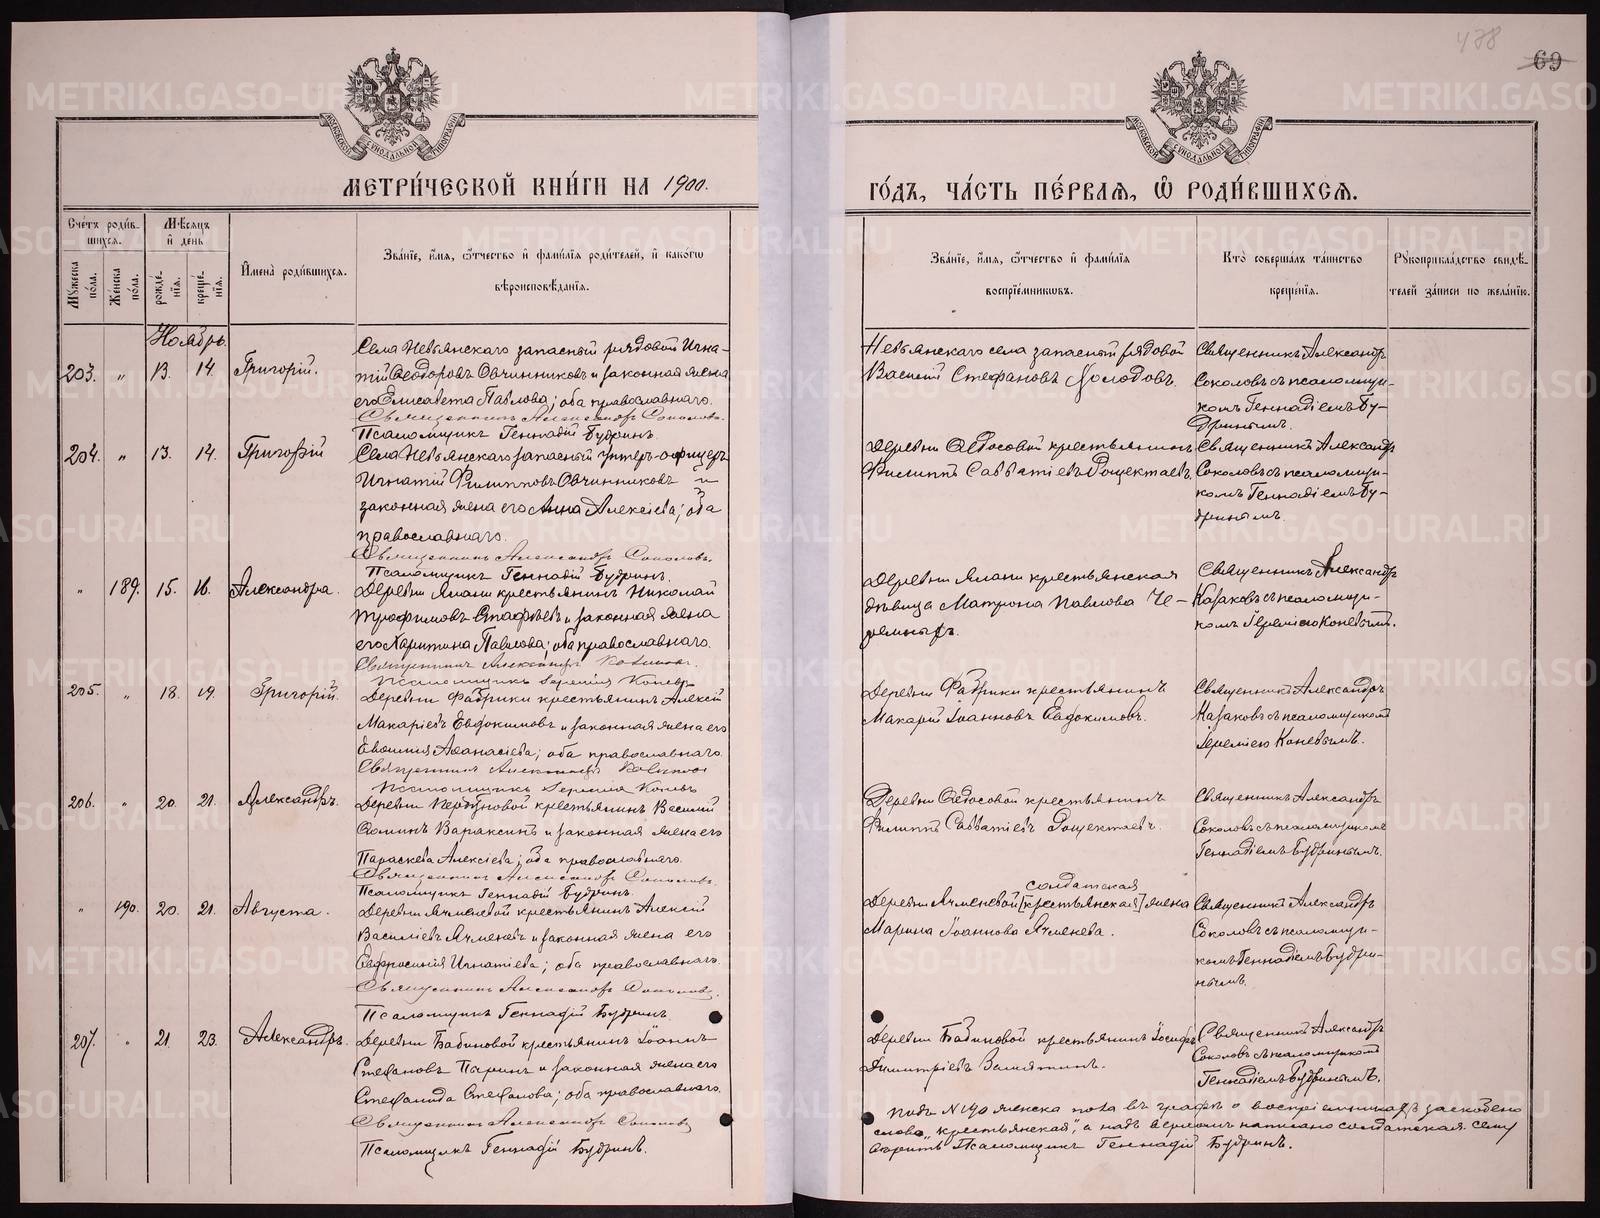 438
69
МОСКОВСКОЙ СѴНОДАЛЬНОЙ ТИПОГРАФІИ
МОСКОВСКОЙ СѴНОДАЛЬНОЙ ТИПОГРАФІИ
МЕТРИ́ЧЕСКОЙ КНИ́ГИ НА 1900.
ГО́ДЪ, ЧА́СТЬ ПЕ́РВАЯ, Ѡ҆ РОДИ́ВШИХСЯ.
Счетъ родившихся.
Мужеска пола.
Женска пола.
Мѣсяцъ и день
рожденія.
крещенія.
Имена родившихся.
Званіе, имя, отчество и фамилія родителей, и какогѡ
вѣроисповѣданія.
Званіе, имя, отчество и фамилія
воспріемниковъ.
Кто совершалъ таинство
крещенія.
Рукоприкладство свидѣ-
телей записи по желанію.
Ноябрь.
203. " 13. 14. Григорій.
Села Невьянскаго запасный рядовой Игна-
тій Ѳеодоровъ Овчинниковъ и законная жена
его Елисавета Павлова; оба православнаго.
Священникъ Александръ Соколовъ.
Псаломщикъ Геннадій Будринъ.
Невьянскаго села запасный рядовой
Василій Стефановъ Холодовъ.
Священникъ Александръ
Соколовъ съ псаломщи-
комъ Геннадіемъ Бу-
дринымъ.
204. " 13. 14. Григорій
Села Невьянскаго запасный унтеръ-офицеръ
Игнатій Филипповъ Овчинниковъ и
законная жена его Анна Алексіева; оба
православнаго.
Священникъ Александръ Соколовъ.
Псаломщикъ Геннадій Будринъ.
Деревни Ѳедосовой крестьянинъ
Филиппъ Савватіевъ Рощектаевъ.
Священникъ Александръ
Соколовъ съ псаломщи-
комъ Геннадіемъ Бу-
дринымъ.
" 189. 15. 16. Александра.
Деревни Ялани крестьянинъ Николай
Трофимовъ Стафѣевъ и законная жена
его Харитина Павлова; оба православнаго.
Священникъ Александръ Казаковъ.
Псаломщикъ Іеремія Коневъ
Деревни Ялани крестьянская
дѣвица Матрона Павлова Че-
ремныхъ.
Священникъ Александръ
Казаковъ съ псаломщи-
комъ Іереміею Коневымъ.
205. " 18. 19. Григорій.
Деревни Фабрики крестьянинъ Алексій
Макаріевъ Евдокимовъ и законная жена его
Евѳимія Аѳанасіева; оба православнаго.
Священникъ Александръ Казаковъ
Псаломщикъ Іеремія Коневъ
Деревни Фабрики крестьянинъ
Макарій Іоанновъ Евдокимовъ.
Священникъ Александръ
Казаковъ съ псаломщикомъ
Іереміею Коневымъ.
206. " 20. 21. Александръ.
крестьянинъ Василій
Ѳоминъ Вараксинъ и законная жена его
Параскева Алексіева; оба православнаго.
Священникъ Александръ Соколовъ.
Псаломщикъ Геннадій Будринъ.
Деревни Ѳедосовой крестьянинъ
Филиппъ Савватіевъ Рощектаевъ.
Священникъ Александръ
Соколовъ съ псаломщикомъ
Геннадіемъ Будринымъ.
" 190. 20. 21. Августа.
Деревни Ячменевой крестьянинъ Алексій
Василіевъ Ячменевъ и законная жена его
Евфросинія Игнатіева; оба православнаго.
Священникъ Александръ Соколовъ.
Псаломщикъ Геннадій Будринъ.
солдатская
Деревни Ячменевой [крестьянская] жена
Марина Іоаннова Ячменева.
Священникъ Александръ
Соколовъ съ псаломщи-
комъ Геннадіемъ Будри-
нымъ.
207. " 21. 23. Александръ.
Деревни Бабиновой крестьянинъ Іоаннъ
Стефановъ Паринъ и законная жена его
Стефанида Стефанова; оба православнаго.
Священникъ Александръ Соколовъ
Псаломщикъ Геннадій Будринъ.
Деревни Бабиновой крестьянинъ Іосифъ
Димитріевъ Замятинъ.
Священникъ Александръ
Соколовъ съ псаломщикомъ
Геннадіемъ Будринымъ.
Подъ №190 женска пола въ графѣ о воспріемникахъ заскоблено
слово „крестьянская", а надъ верхомъ написано солдатская сему
вѣрить Псаломщикъ Геннадій Будринъ.
METRIKI.GASO-URAL.RU